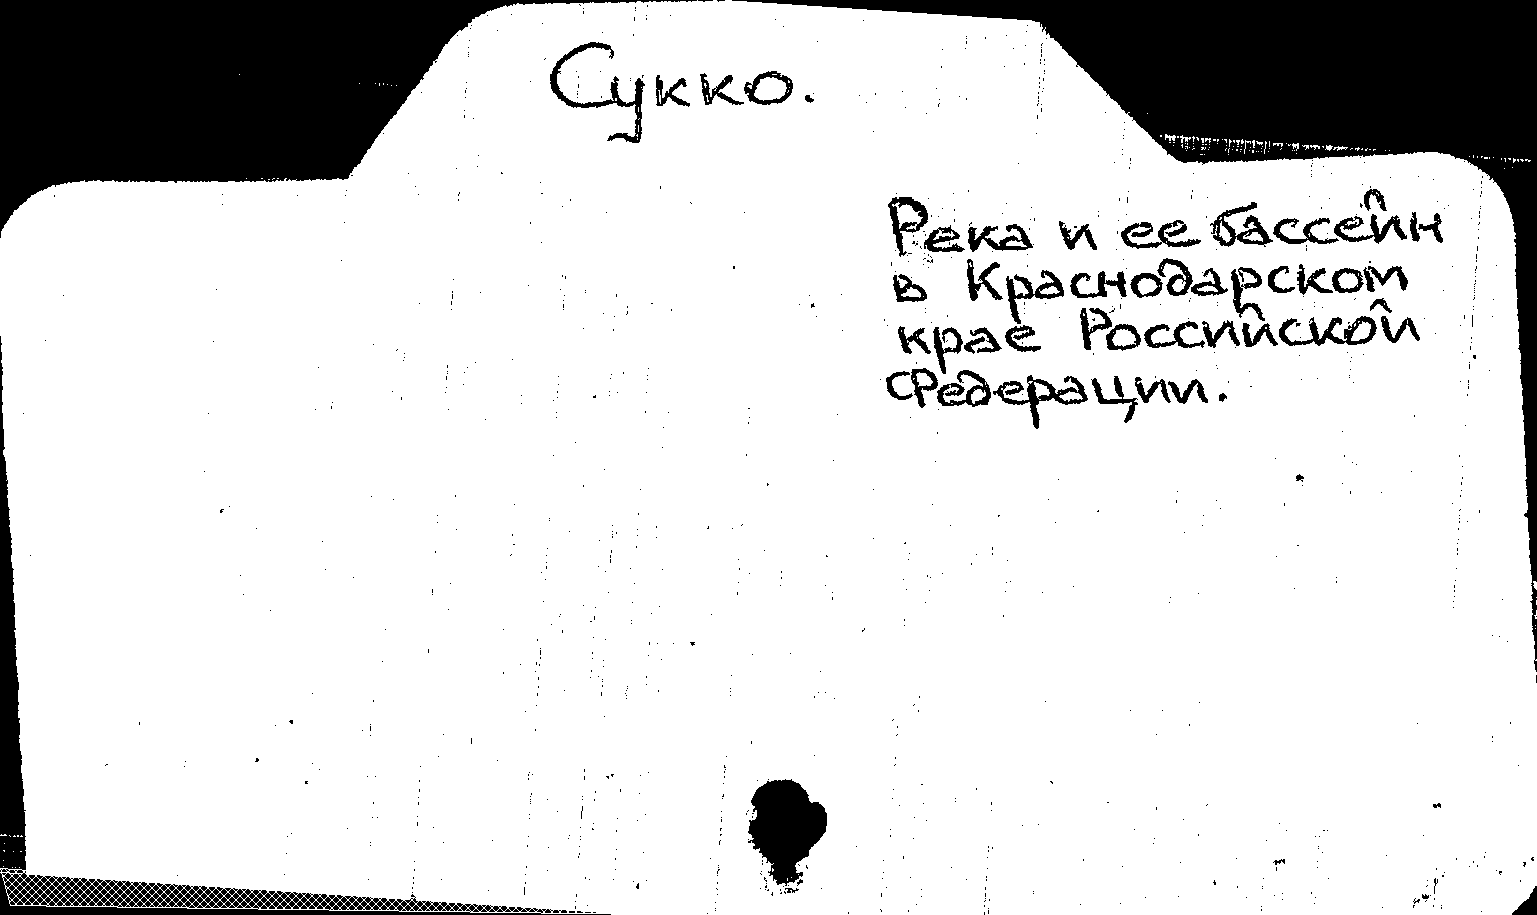 Сукко.
Река и ее бассейн
в Краснодарском
крае Российской
Федерации.